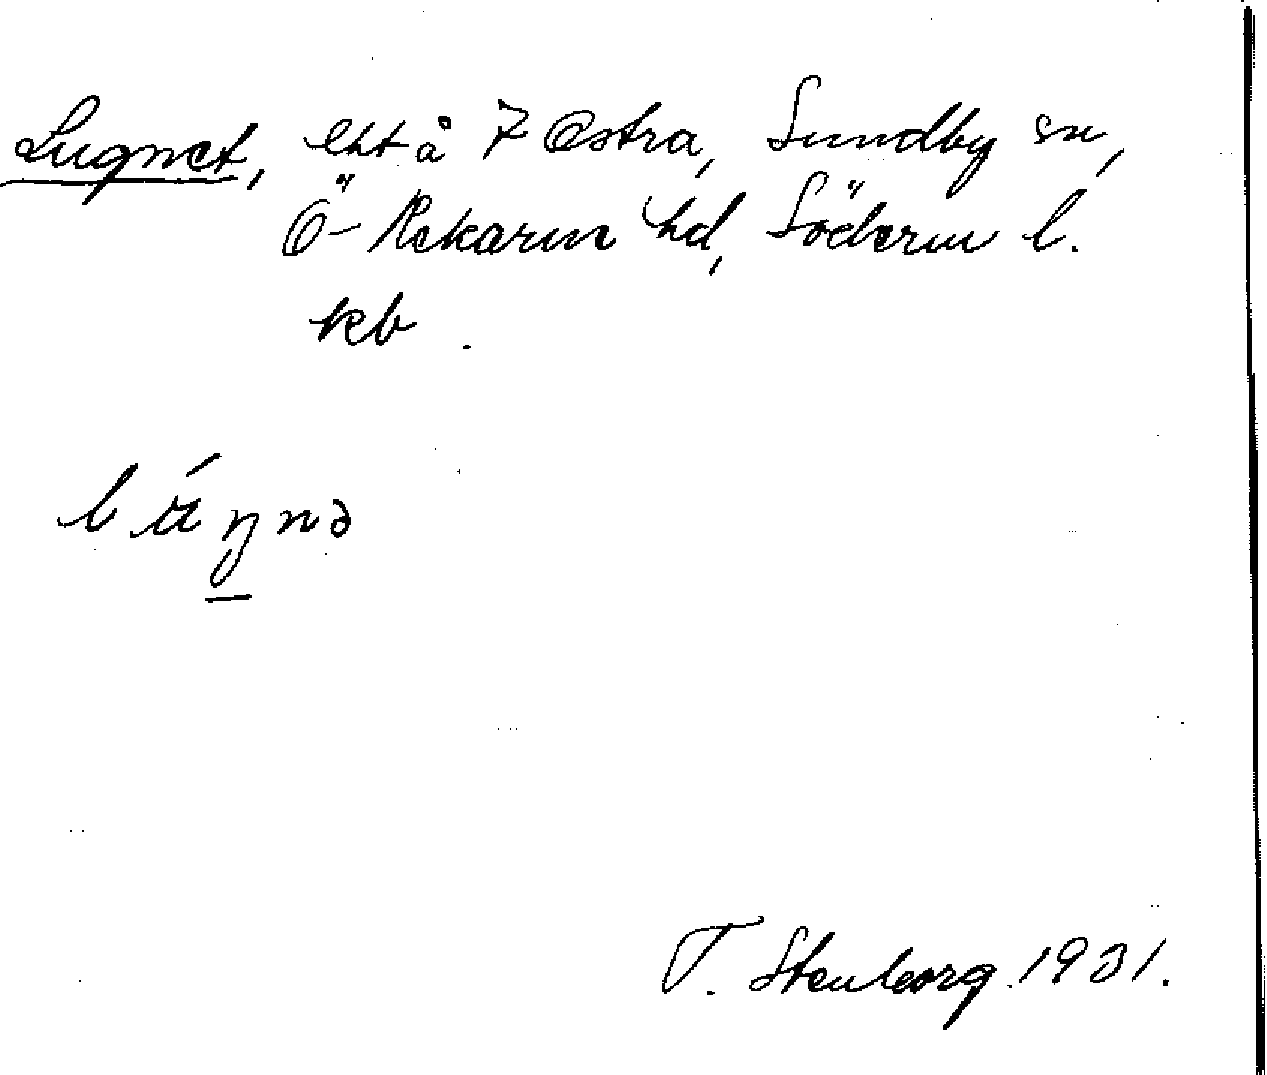 Lugnet, lht å 7 Östra, Sundby sn,
Ö-Rekarne hd, Söderm l.
kb.
lúŋnə
T. Stenborg 1931.